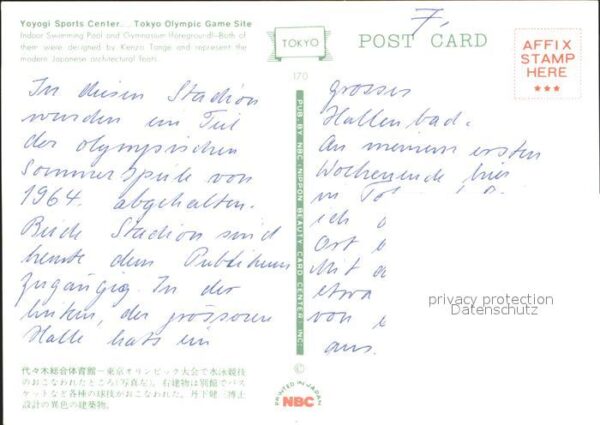 Yoyogi Sports Center... Tokyo Olympic Game Site
Indoor Swimming Pool and Gymnasium (foreground)—Both of
them were designed by Kenzo Tange and represent the
modern Japanese architectural feats.
In diesem Stadion
wurden ein Teil
der olympischen
Sommerspiele von
1964. abgehalten.
Beide Stadion sind
heute dem Publikum
zugängig. In der
linken, der grösseren
Halle hats ein
代々木総合体育館－東京オリンピック大会で水泳競技
のおこなわれたところ(写真左)。右建物は別館でバス
ケットなど各種の球技がおこなわれた。丹下健三博士
設計の異色の建築物。
TOKYO
POST CARD
7.
AFFIX
STAMP
HERE
★★★
170
PUB. BY NBC (NIPPON BEAUTY CARD CENTER) INC.
©
PRINTED IN JAPAN
NBC
grosses
Hallenbad.
An meinem ersten
Wochenende hier
in
ich
Ort
Mit
etwa
von
aus.
privacy protection
Datenschutz